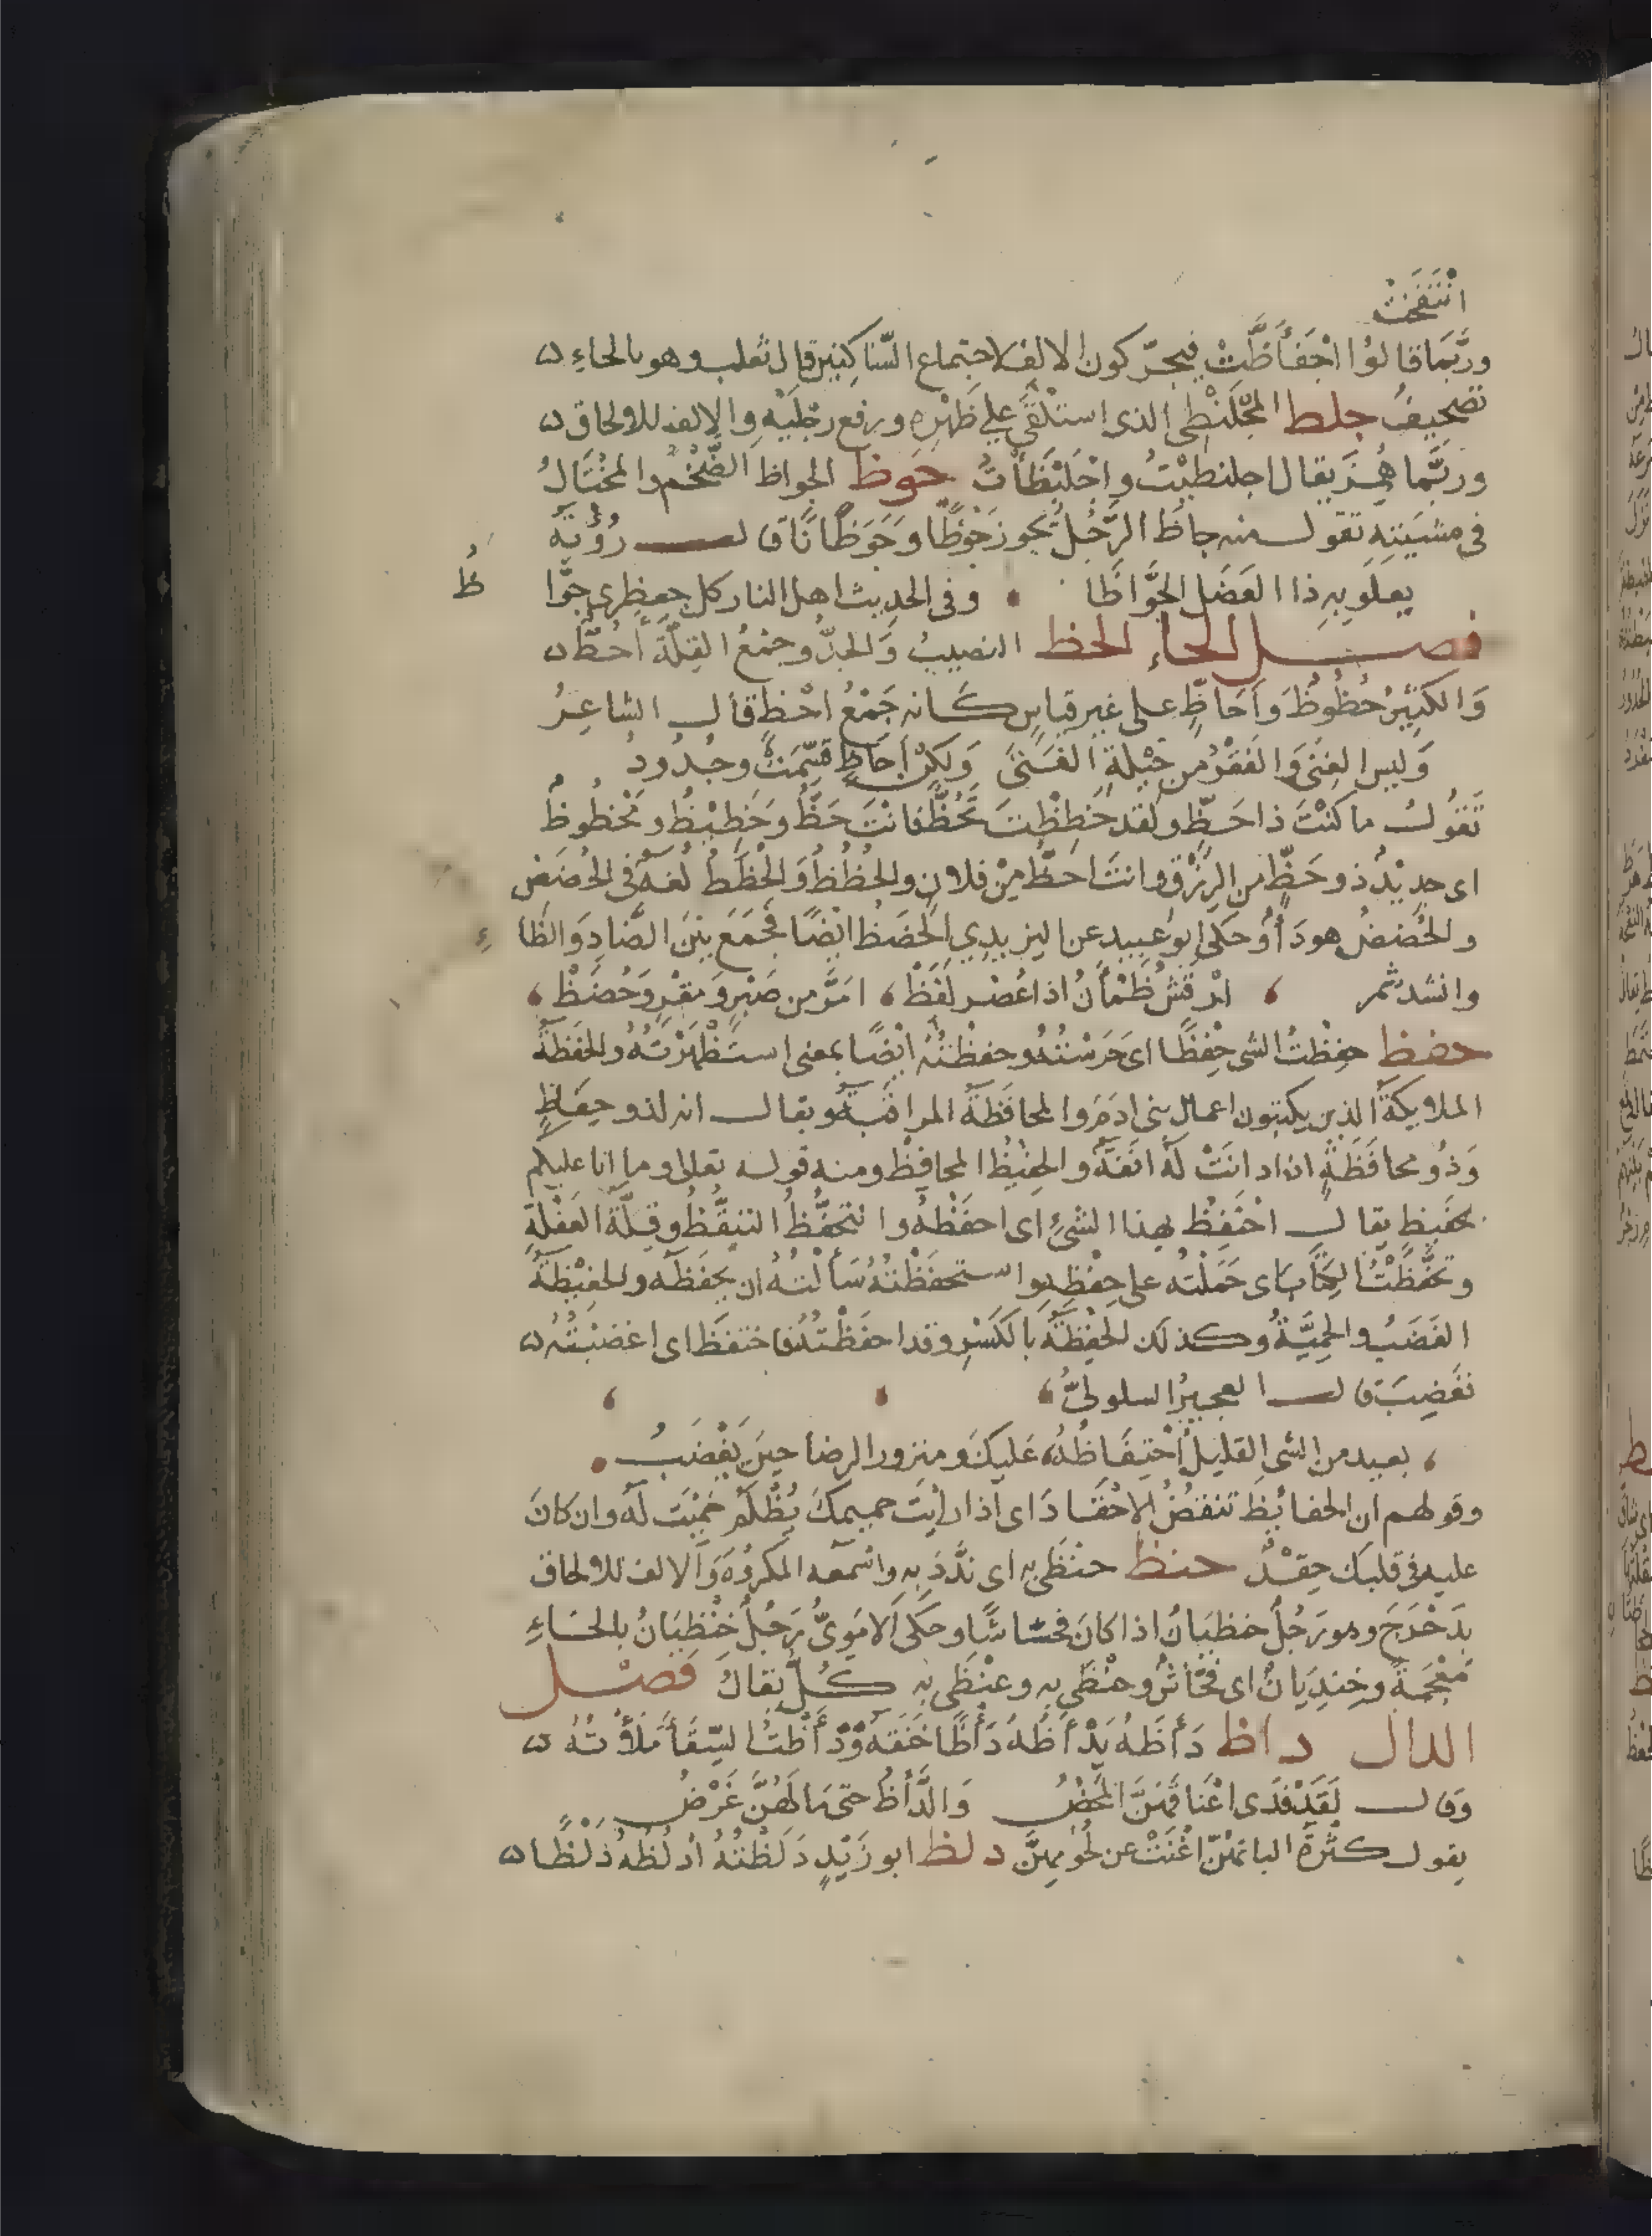 انْتَفَخَتْ
وربَّمَا قالوُا اجْفَأَظَّتْ فيحرّكون الالف لاجتماع السّاكنين قال ثعلب وهو بالحاءِ
تَصْحيفٌ جلظ المجْلَنْظِى الذى استَلْقَى على ظَهْرِهِ ورفع رِجْلَيْهِ والالف للالحاق
وربَّما هُمِزَ يقال اجلنظيْتُ واجْلَنْظَأْتُ جَوظ الجواظ الضَّخْمُ المُخْتَالُ
فى مشيَتِهِ تقول منه جاظَ الرَّجُلُ يجوز جَوْظًا وَجَوَظَانًا قال رُؤْبَة
يعلُو بِهِ ذا العَضَلِ الجَوَّاظَا وفى الحديث اهل النار كل جعظرى جوَّا
ظُ
فصل الحاءِ الحظ النصيبُ وَالجَدُّ وجمْعُ القِلَّةِ أحُظٌّ
وَالكَثِيْرُ حُظُوظٌ وَاَحَاظٍ على غير قياسٍ كَانه جَمْعُ احْظٍ قال الشاعِرُ
وَليس الغِنَى وَالفَقْرُ من حِيْلةِ الفَتَى وَلكِنْ أحَاظٍ قُسِّمَتْ وجُدُودُ
تَقُولُ ما كُنْتَ ذا حَظٍّ ولَقد حَظِظْتَ تَحَظُّ فانْتَ حَظٌّ وحَظِيْظٌ ومَحْظُوظٌ
اى جديْدٌ ذو حَظٍّ من الرِزْقِ وانتَ احَظُّ مِنْ فلانٍ والحُظُظُ وَالحُظَظُ لُغَةٌ فى الحُضَضِ
والحُضضُ هو دَوَاءٌ وحكى ابو عُبيدٍ عن اليزيدِي الحُضَظُ ايْضًا فَجَمَعَ بَيْنَ الضَّادِ وَالظَا
ءِ
وانشد شمر ارْقَشُ ظَمْآنُ اذا عُصْرَ لَفَظْ امَرُّ من صَبْرٍ وَمَقِرٍ وَحُضَظْ
حفظ حفِظْتُ الشى حِفْظًا اى حَرَسْتُهُ وحفظْتُهُ ايْضًا بمعنى استَظْهَرْتُهُ والحَفَظَةُ
الملايكَةُ الذين يكتبون اعمال بنى ادَمَ والمحافَظَةُ المراقَبَةُ ويقال انه لذو حِفَاظٍ
وَذُو محافَظَةٍ اذا كانَتْ لَهُ انَفَةٌ والحفِيْظُ المحافِظُ ومنه قوله تعالى وما انا عليكم
بحفيظ يقال احْتَفِظْ بهذا الشئِ اى احفَظْهُ والتَحَفُّظُ التَيقُّظُ وقِلَّةُ الغَفْلَةِ
وحَفَّظْتُهُ الكِتَابَ اى حَمَلْتُه على حِفْظِهِ واستحفَظْتُهُ سَأَلْتُهُ ان يحفَظَه والحفِيْظَةُ
الغَضَبُ والحمِيَّةُ وكذلك الحِفْظَةُ بالكَسْرِ وقد احفَظْتُهُ فاحتفَظَ اى اغضبْتُه
فغَضِبَ قال العجيرُ السلولىُّ
بعيد من الشى القليل احْتِفَاظُهُ عَليكَ ومنزور الرضا حِينَ يَغْضَبُ
وقولهم ان الحفايْظَ تنقضُ الاحْقَادَ اى اذا رايْتَ حميمكَ يُظْلَمُ حَمِيْتَ لَهُ وان كانَ
عليه فى قلبك حِقْدٌ حنظ حنْظَى بِهِ اى نَدَّدَ بِهِ واسْمعَه المكرُوهَ وَالالف للالحاق
بِدَحْرَجَ وهو رَجُلٌ حنظيَانٌ اذا كانَ فحّاشًا وحكى الامَوِىُّ رَجُلٌ خِنْظِيَانٌ بالخَاءِ
مُعْجَمَةً وخِنذِيَانٌ اى فَحَّاشٌ وخَنْظَى بِهِ وعَنْظَى بِهِ كُلٌّ يقالُ فصل
الدال داظ دَأَظَهُ يَدْأَظُهُ دَأْظًا خَنَقَهُ ودَأَظْتُ السِّقَاءَ مَلأْتُهُ
وقال لَقَدْ فَدَى اعْنَاقَهُنَّ المَحْضُ وَالدَّأْظُ حتى مَا لَهُنَّ غَرْضُ
يقول كثْرَةُ البانهِنَّ اغْنَتْ عن لُحُومِهِنَّ دلظ ابو زَيْدٍ دَلَظْتُهُ أدْلُظُهُ دَلْظًا